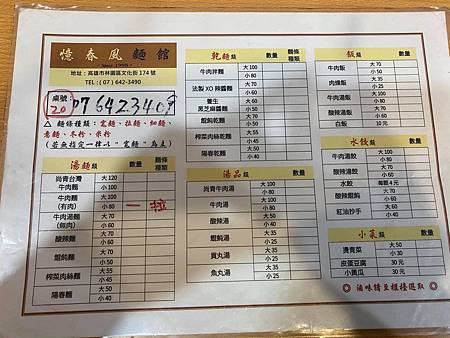 憶春風麵館
Since 1998
地址：高雄市林園區文化街 174 號
TEL：( 07 ) 642-3490
桌號
20
07 6423409
△ 麵條種類：寬麵、拉麵、細麵、
意麵、冬粉、米粉
(若無指定一律以，寬麵，為主)
湯麵類 數量 麵條種類
尚青台灣牛肉麵 大 120 小 100
牛肉麵(有肉) 大 100 小 80 一 拉
牛肉湯麵(無肉) 大 70 小 60
酸辣麵 大 70 小 60
餛飩麵 大 50 小 40
榨菜肉絲麵 大 55 小 45
陽春麵 大 50 小 40
乾麵類 數量 麵條種類
牛肉拌麵 大 100 小 80
法製 XO 辣醬麵 大 70 小 60
養生黑芝麻醬麵 大 70 小 60
餛飩乾麵 大 50 小 40
榨菜肉絲乾麵 大 55 小 45
陽春乾麵 大 50 小 40
湯品類 數量
尚青牛肉湯 大 100 小 80
牛肉湯 大 100 小 80
酸辣湯 大 50 小 35
餛飩湯 大 50 小 35
貢丸湯 大 35 小 25
魚丸湯 大 35 小 25
飯類 數量
牛肉飯 大 70 小 50
肉燥飯 大 35 小 25
牛肉湯飯 大 100 小 80
酸辣湯飯 大 70 小 50
白飯 10 元
水餃類 數量
牛肉湯餃 大 100 小 80
酸辣湯餃 大 70 小 50
水餃 每顆 4 元
酸辣餛飩 大 60 小 50
紅油抄手 大 60 小 40
小菜類 數量
燙青菜 大 50 小 30
皮蛋豆腐 30 元
小黃瓜 30 元
◎ 滷味請至櫃檯選取 ◎